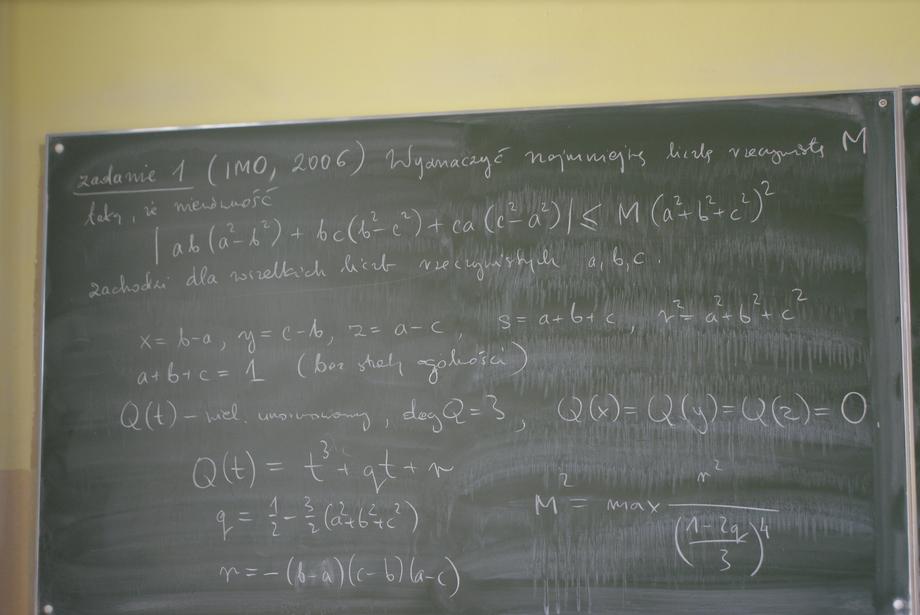 zadanie 1 (IMO, 2006) Wyznaczyć najmniejszą liczbę rzeczywistą M
taką, że nierówność
|ab(a²-b²) + bc(b²-c²) + ca(c²-a²)| ≤ M(a²+b²+c²)²
zachodzi dla wszelkich liczb rzeczywistych a, b, c.
x = b-a, y = c-b, z = a-c, s = a+b+c, r² = a²+b²+c²
a+b+c = 1 (bez straty ogólności)
Q(t) - wiel. unormowany, deg Q = 3, Q(x) = Q(y) = Q(z) = 0.
Q(t) = t³ + qt + r
q = 1/2 - 3/2 (a²+b²+c²)
M² = max r² / ((1-2q)/3)⁴
r = -(b-a)(c-b)(a-c)